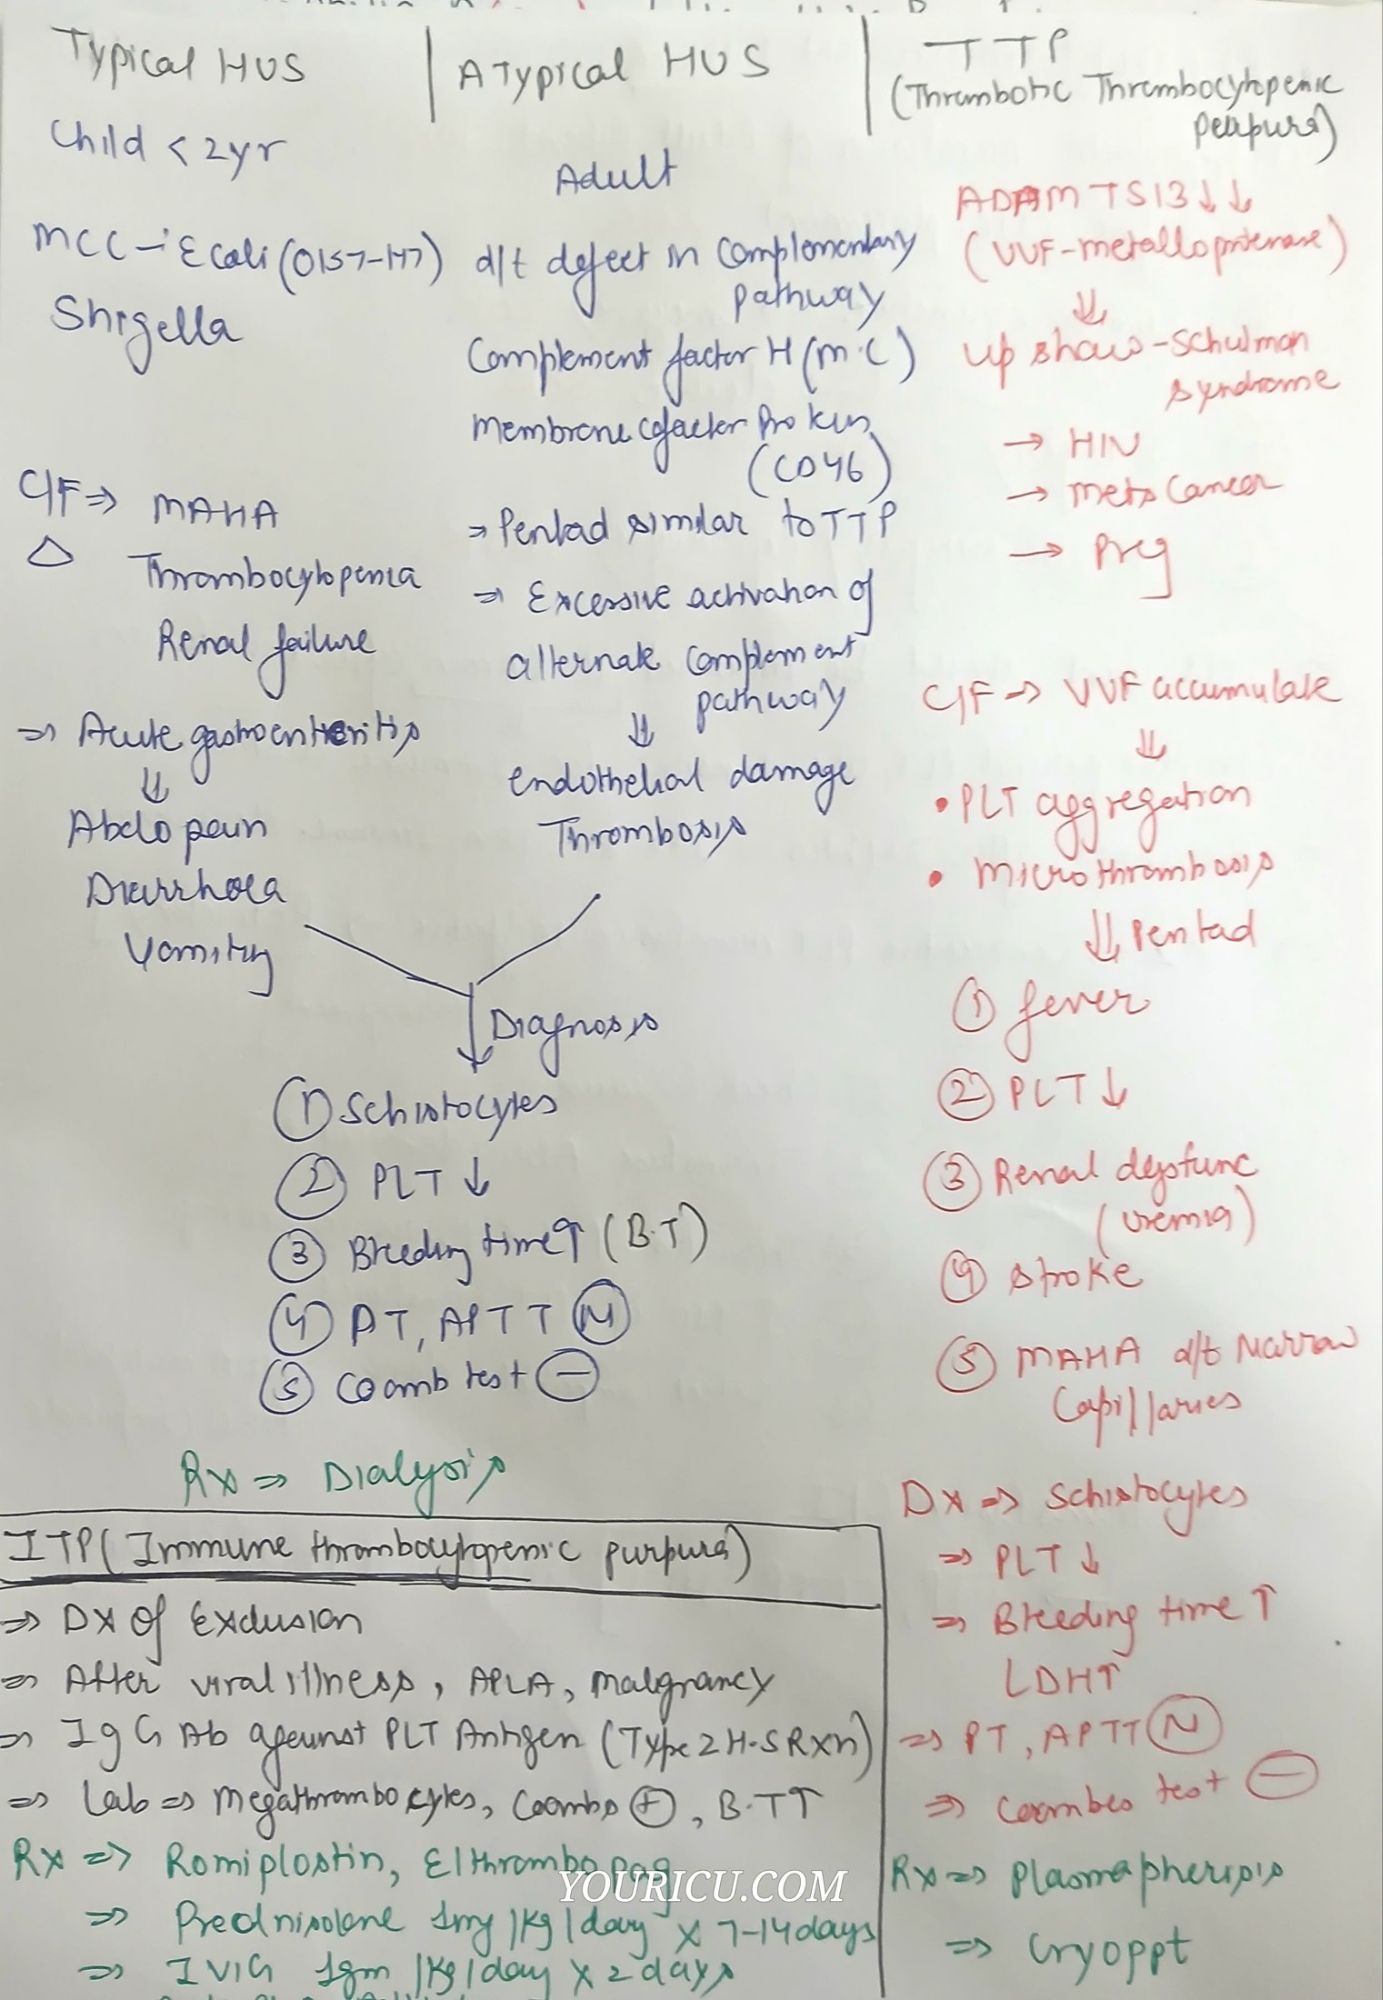 Typical HUS
Child < 2yr
MCC → E coli (O157-H7)
Shigella
C/F ⇒ MAHA
△ Thrombocytopenia
Renal failure
⇒ Acute gastroenteritis
⇓
Abdo pain
Diarrhoea
Vomiting
ATypical HUS
Adult
d/t defect in complementary
pathway
Complement factor H (m.c)
Membrane cofactor Protein
(CD46)
⇒ Pentad similar to TTP
⇒ Excessive activation of
alternate complement
pathway
⇓
endothelial damage
Thrombosis
Diagnosis
① Schistocytes
② PLT ↓
③ Bleeding time ↑ (B.T)
④ PT, APTT Ⓝ
⑤ Coomb test ⊖
Rx ⇒ Dialysis
TTP
(Thrombotic Thrombocytopenic
Peapura)
ADAMTS13 ↓↓
(VWF-metalloproterase)
⇓
Up shaw-Schulman
syndrome
→ HIV
→ Mets Cancer
→ Preg
C/F ⇒ VWF accumulate
⇓
• PLT aggregation
• Microthrombosis
⇓ Pentad
① fever
② PLT ↓
③ Renal dysfunc
(uremia)
④ stroke
⑤ MAHA d/t Narrow
Capillaries
Dx ⇒ Schistocytes
⇒ PLT ↓
⇒ Bleeding time ↑
LDH↑
⇒ PT, APTT Ⓝ
⇒ Coombes test ⊖
Rx ⇒ Plasmapherisis
⇒ Cryoppt
ITP (Immune thrombocytopenic purpura)
⇒ Dx of Exclusion
⇒ After viral illness, APLA, Malignancy
⇒ IgG Ab against PLT Antigen (Type 2 H.S Rxn)
⇒ Lab ⇒ Megathrombocytes, Coombs ⊕, B.T↑
Rx ⇒ Romiplostin, Elthrombopag
⇒ Prednisolone 1mg/kg/day x 7-14days
⇒ IVIG 1gm/kg/day x 2 days
YOURICU.COM